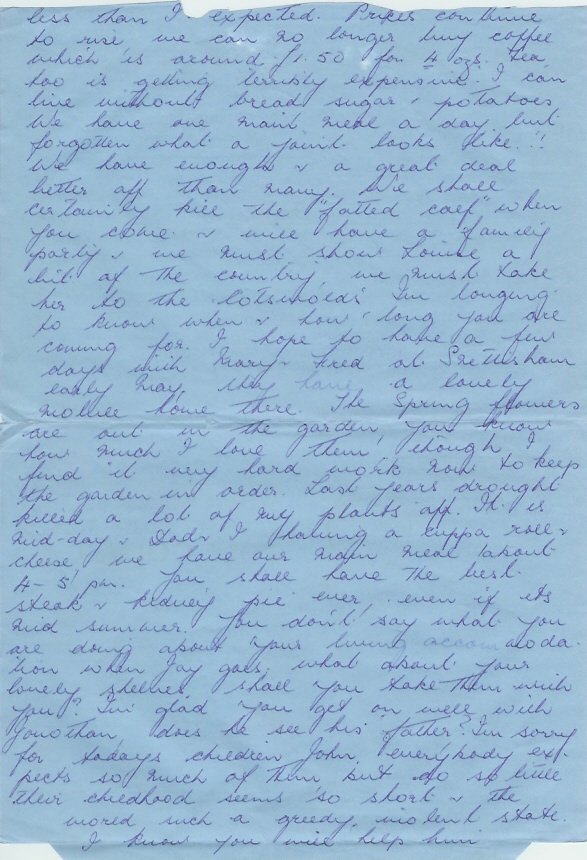 less than I expected. Prices continue
to rise we can no longer buy coffee
which is around £1.50 for 4 ozs. Tea
too is getting terribly expensive. I can
live without bread sugar & potatoes
We have one main meal a day but
forgotten what a joint looks like!!!
We have enough & a great deal
better off than many. We shall
certainly kill the "fatted calf" when
you come & will have a family
party & we must show Louise a
bit of the country we must take
her to the Cotswolds I'm longing
to know when & how long you are
coming for. I hope to have a few
days with Mary & Fred at Snettisham
early May, they have a lovely
mobile home there. The Spring flowers
are out in the garden, you know
how much I love them, though I
find it very hard work now to keep
the garden in order. Last years drought
killed a lot of my plants off. It is
mid-day & Dad & I having a cuppa roll &
cheese we have our main meal about
4-5 pm. You shall have the best
steak & kidney pie ever, even if its
mid summer. You don't say what you
are doing about your living accommoda
tion when Jay goes, what about your
lovely shelves shall you take them with
you? I'm glad you get on well with
Jonothan, does he see his father? I'm sorry
for todays children John, everybody ex-
pects so much of them but do so little
their childhood seems so short & the
world such a greedy, violent state.
I know you will help him